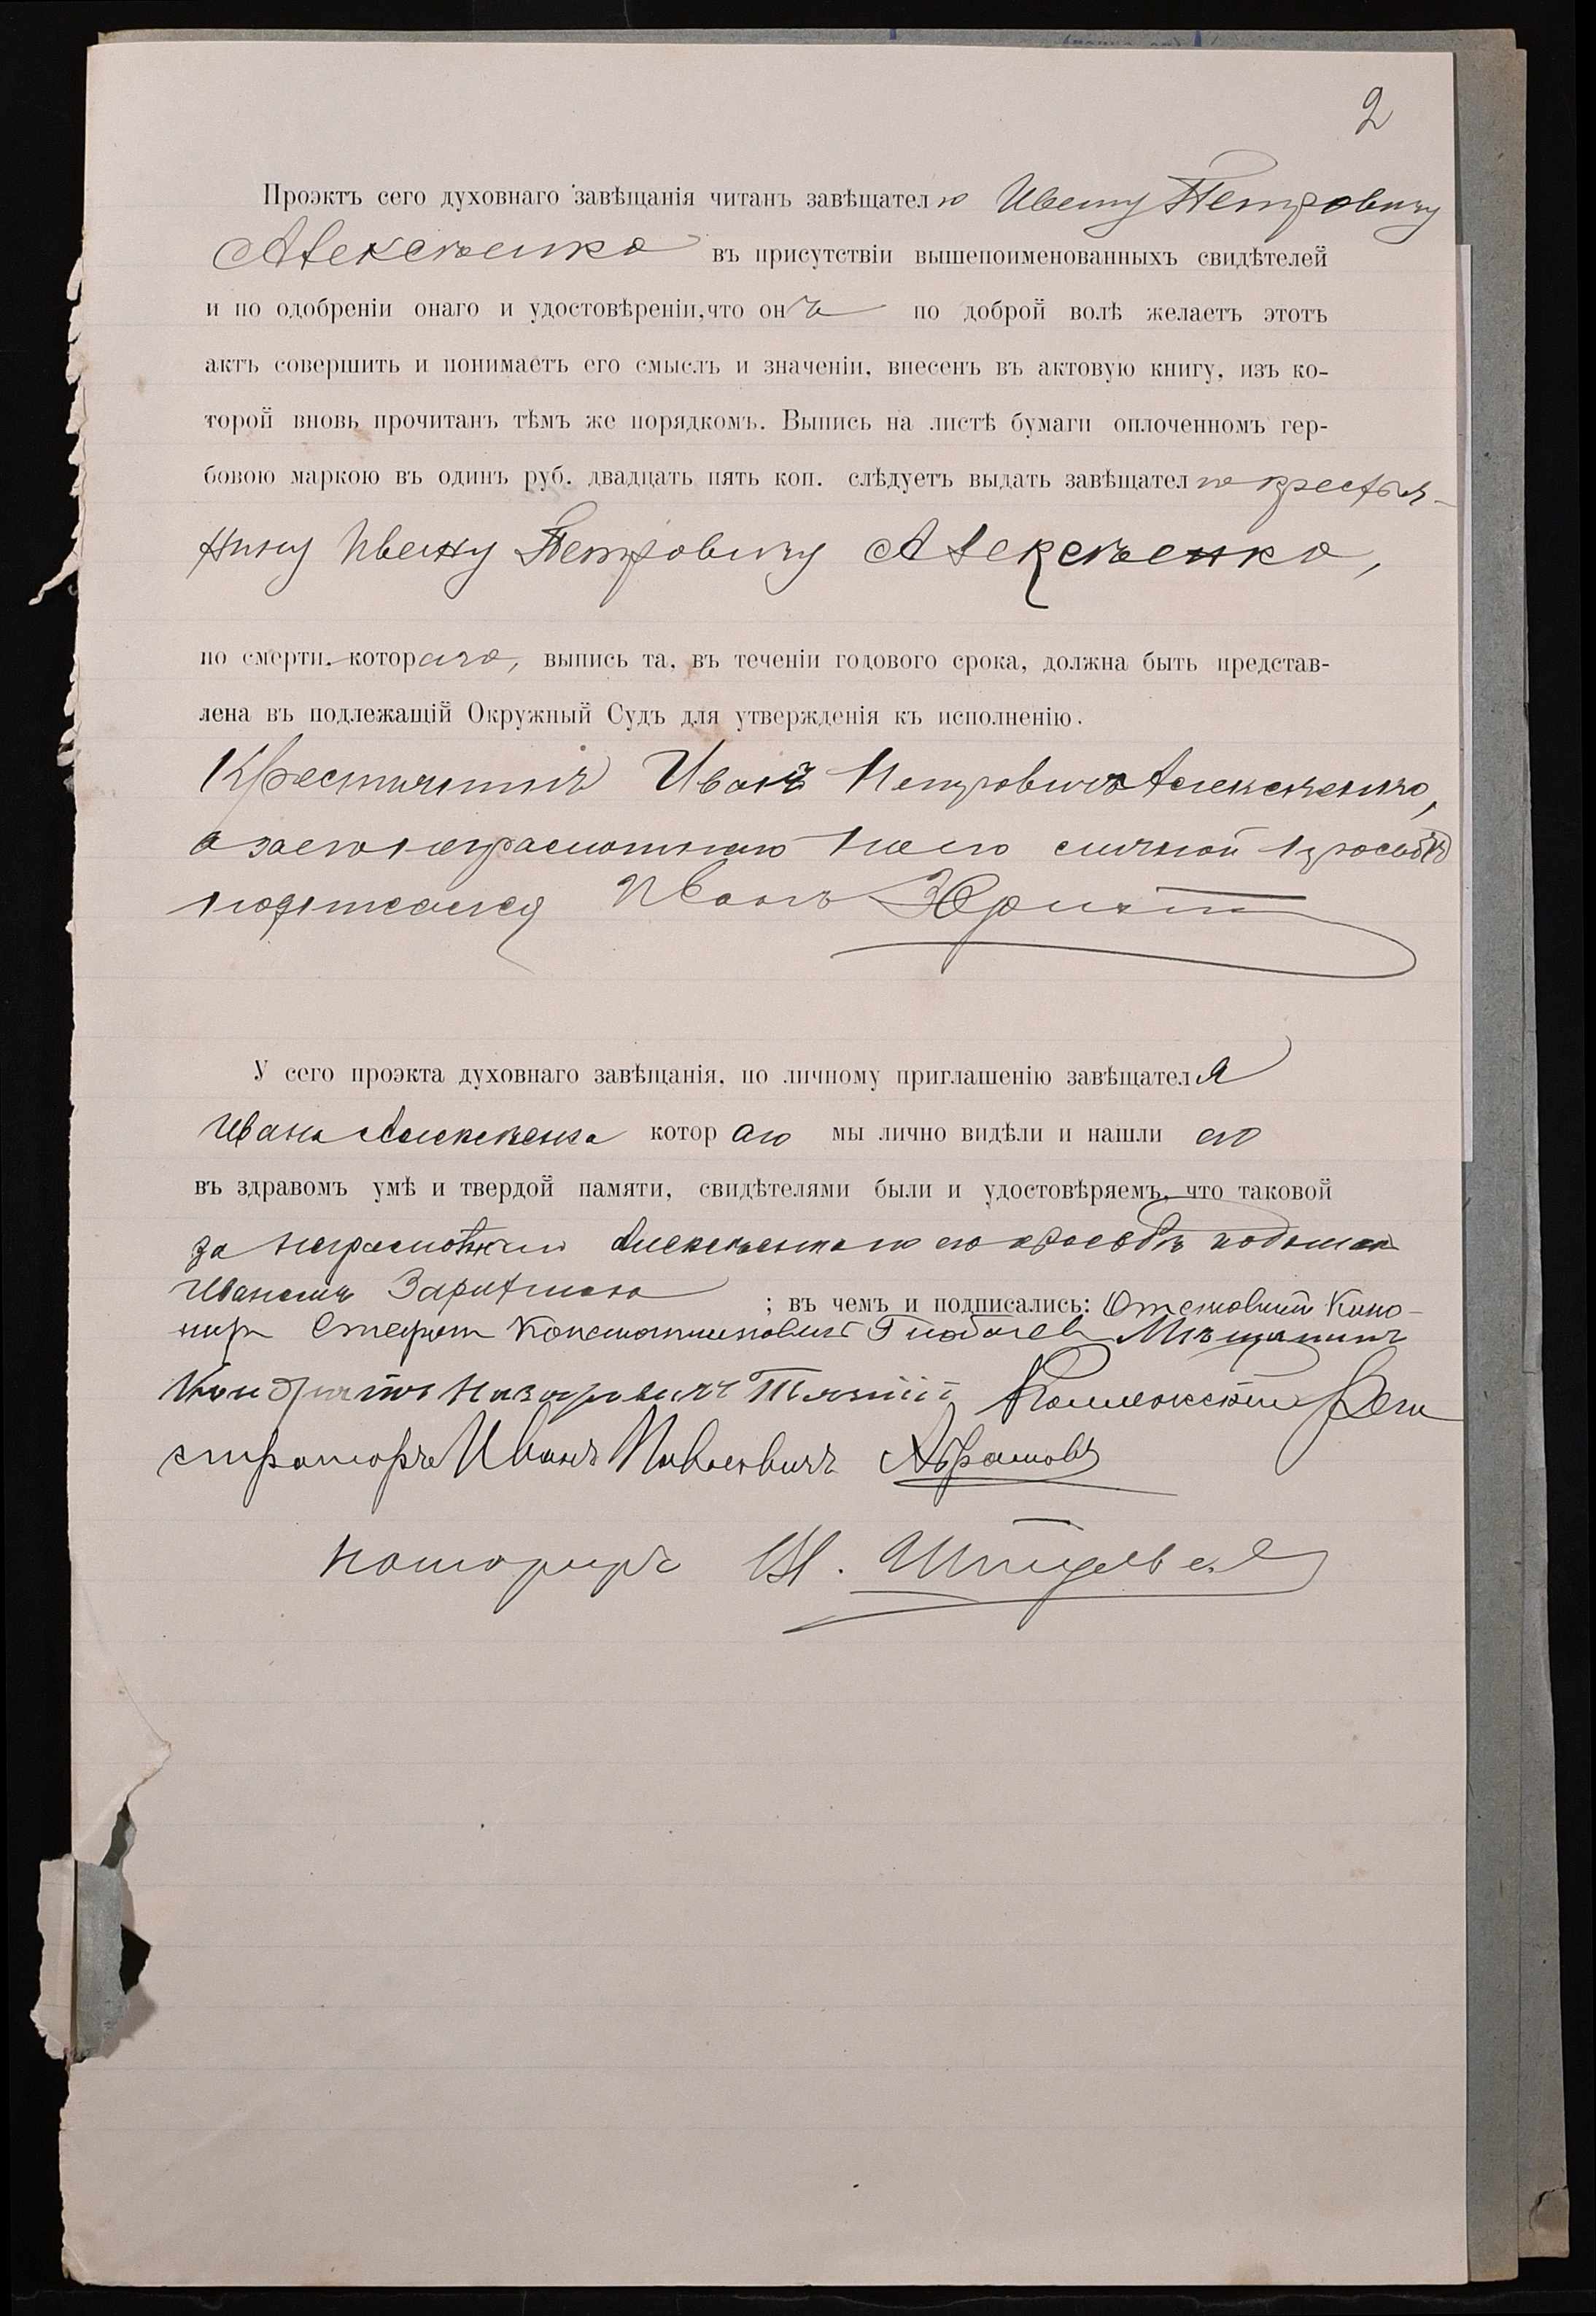 2
Проэктъ сего духовнаго завѣщанія читанъ завѣщателю Ивану Петровичу
Алексѣенко въ присутствіи вышепоименованныхъ свидѣтелей
и по одобреніи онаго и удостовѣреніи, что онъ по доброй волѣ желаетъ этотъ
актъ совершить и понимаетъ его смыслъ и значеніи, внесенъ въ актовую книгу, изъ ко-
торой вновь прочитанъ тѣмъ же порядкомъ. Выпись на листѣ бумаги оплоченномъ гер-
бовою маркою въ одинъ руб. двадцать пять коп. слѣдуетъ выдать завѣщателю крестья-
нину Ивану Петровичу Алексѣенко,
по смерти, котораго, выпись та, въ теченіи годового срока, должна быть представ-
лена въ подлежащій Окружный Судъ для утвержденія къ исполненію.
Крестьянинъ Иванъ Петровичъ Алексѣенко,
а за его неграмотного по его личной просьбѣ
подписался Иванъ
У сего проэкта духовнаго завѣщанія, по личному приглашенію завѣщателя
Ивана Алексѣенка котораго мы лично видѣли и нашли его
въ здравомъ умѣ и твердой памяти, свидѣтелями были и удостовѣряемъ, что таковой
за неграмотнаго Алексѣенка по его просьбѣ подписан
Иваномъ ; въ чемъ и подписались: Отставной Кано-
ниръ Степанъ Константиновичъ Мѣщанинъ
Кондратъ Назаровичъ Коллежскій Реги
страторъ Иванъ Павловичъ Абрамовъ
Нотаріусъ